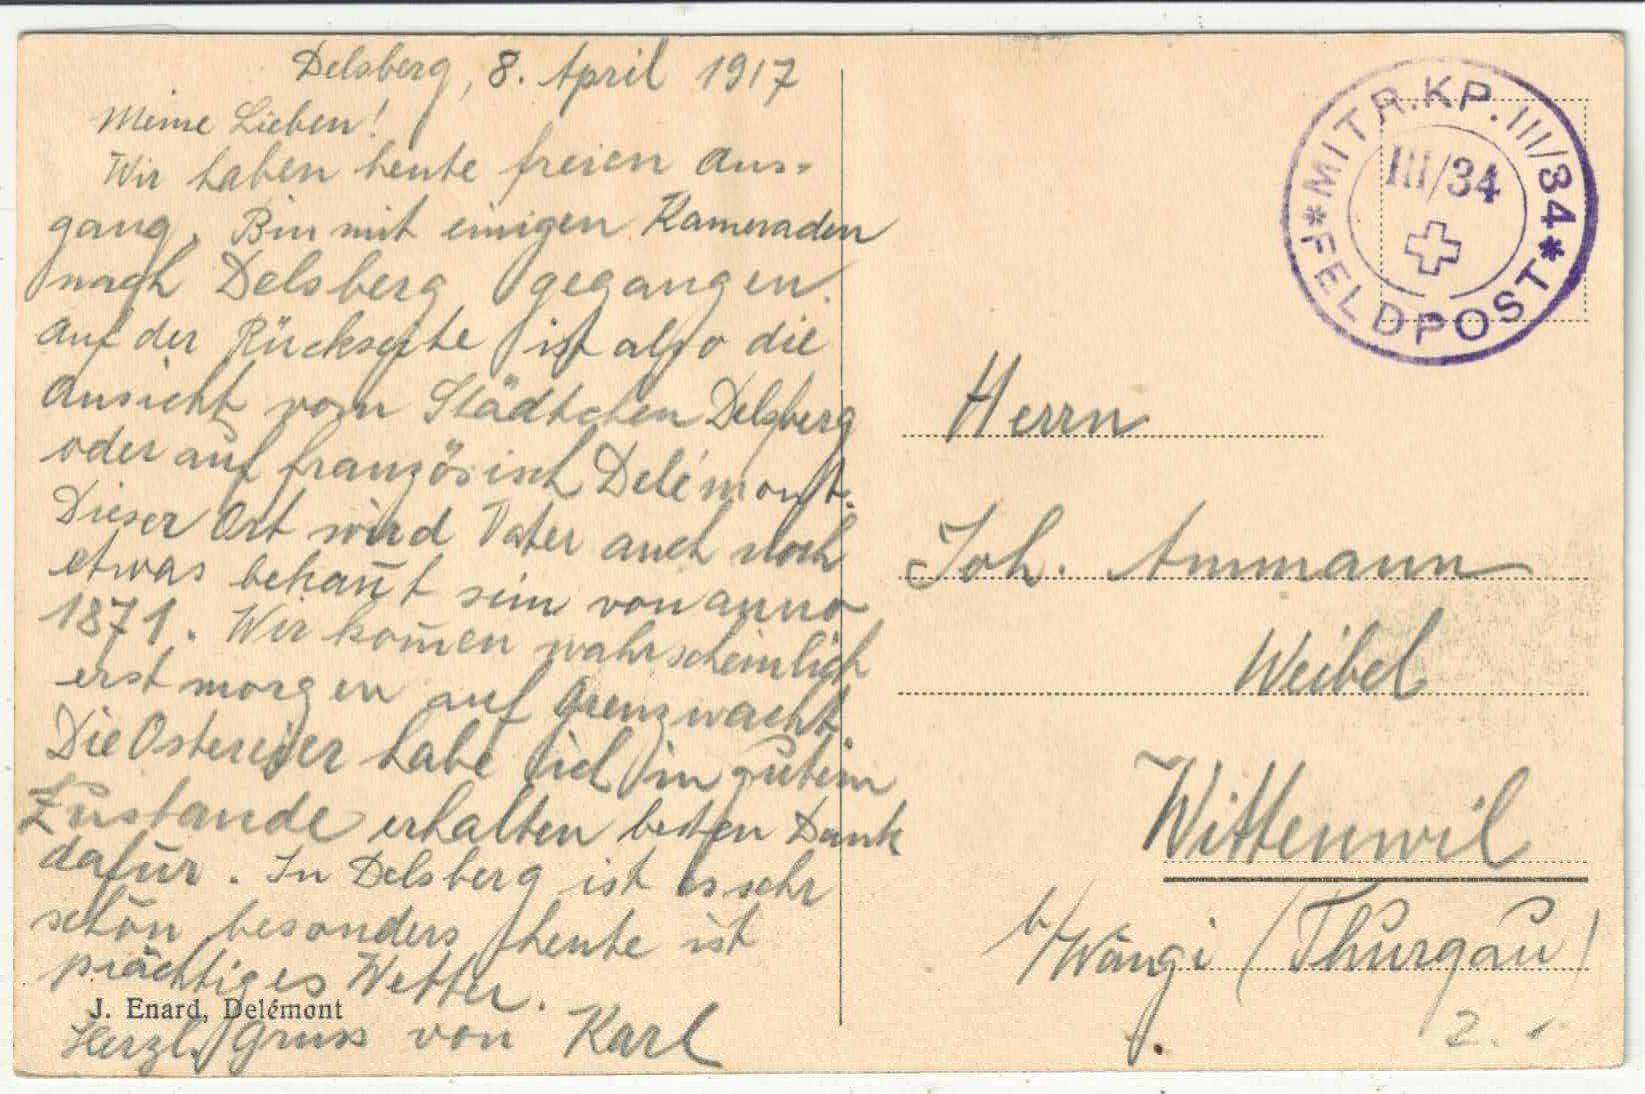 Delsberg, 8. April 1917
Meine Lieben!
Wir haben heute freien Aus-
gang. Bin mit einigen Kameraden
nach Delsberg gegangen.
Auf der Rückseite ist also die
Ansicht vom Städtchen Delsberg
oder auf französisch Delémont.
Dieser Ort wird Vater auch noch
etwas bekan̄t sein von anno
1871. Wir kom̄en wahrscheinlich
erst morgen auf Grenzwacht.
Die Ostereier habe ich in gutem
Zustande erhalten besten Dank
dafür. In Delsberg ist es sehr
schön besonders heute ist
prächtiges Wetter.
J. Enard, Delémont
Herzl. Gruss von Karl
*MITR.KP.III/34*
III/34
FELDPOST
Herrn
Joh. Ammann
Weibel
Wittenwil
b/Wängi (Thurgau)
2.